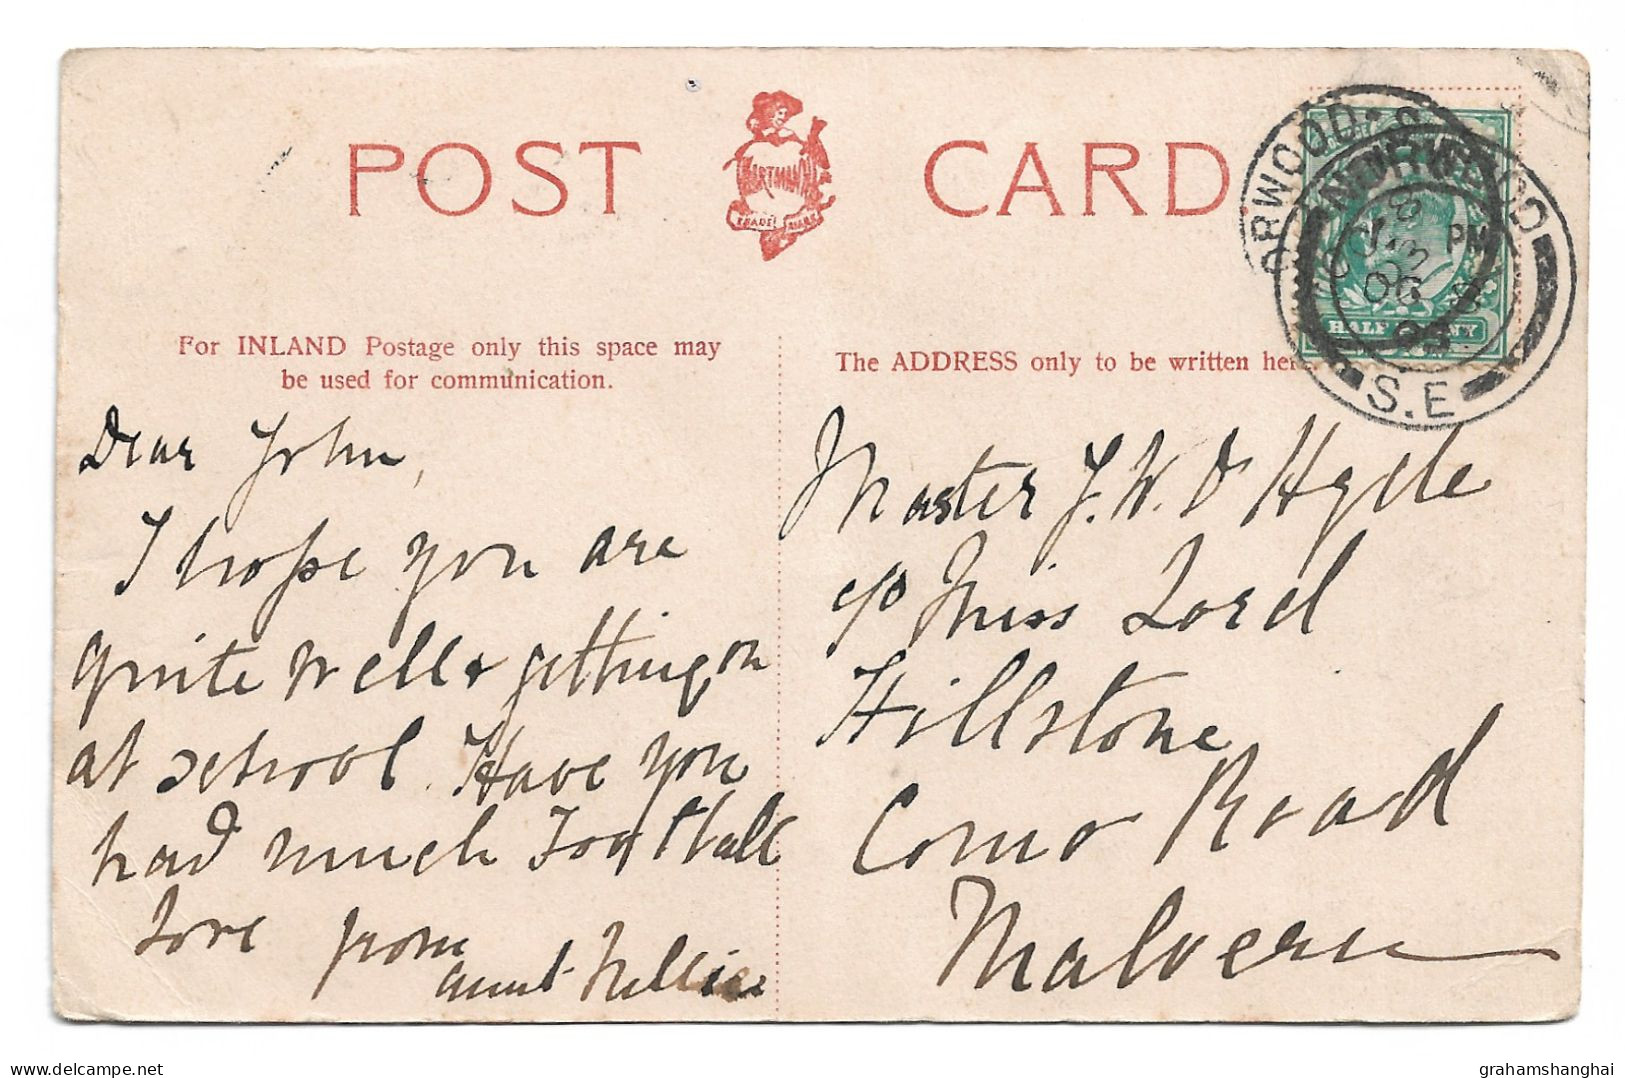 POST CARD
HARTMANN
TRADE MARK
For INLAND Postage only this space may
be used for communication.
The ADDRESS only to be written here.
NORWOOD
S.E
PM
06
HALF PENNY
Dear John,
I hope you are
quite well & getting on
at school. Have you
had much Football
Love from
Aunt Nellie
Master J. W. D Hyde
c/o Miss Lord
Hillstone
Como Road
Malvern
www.delcampe.net
grahamshanghai